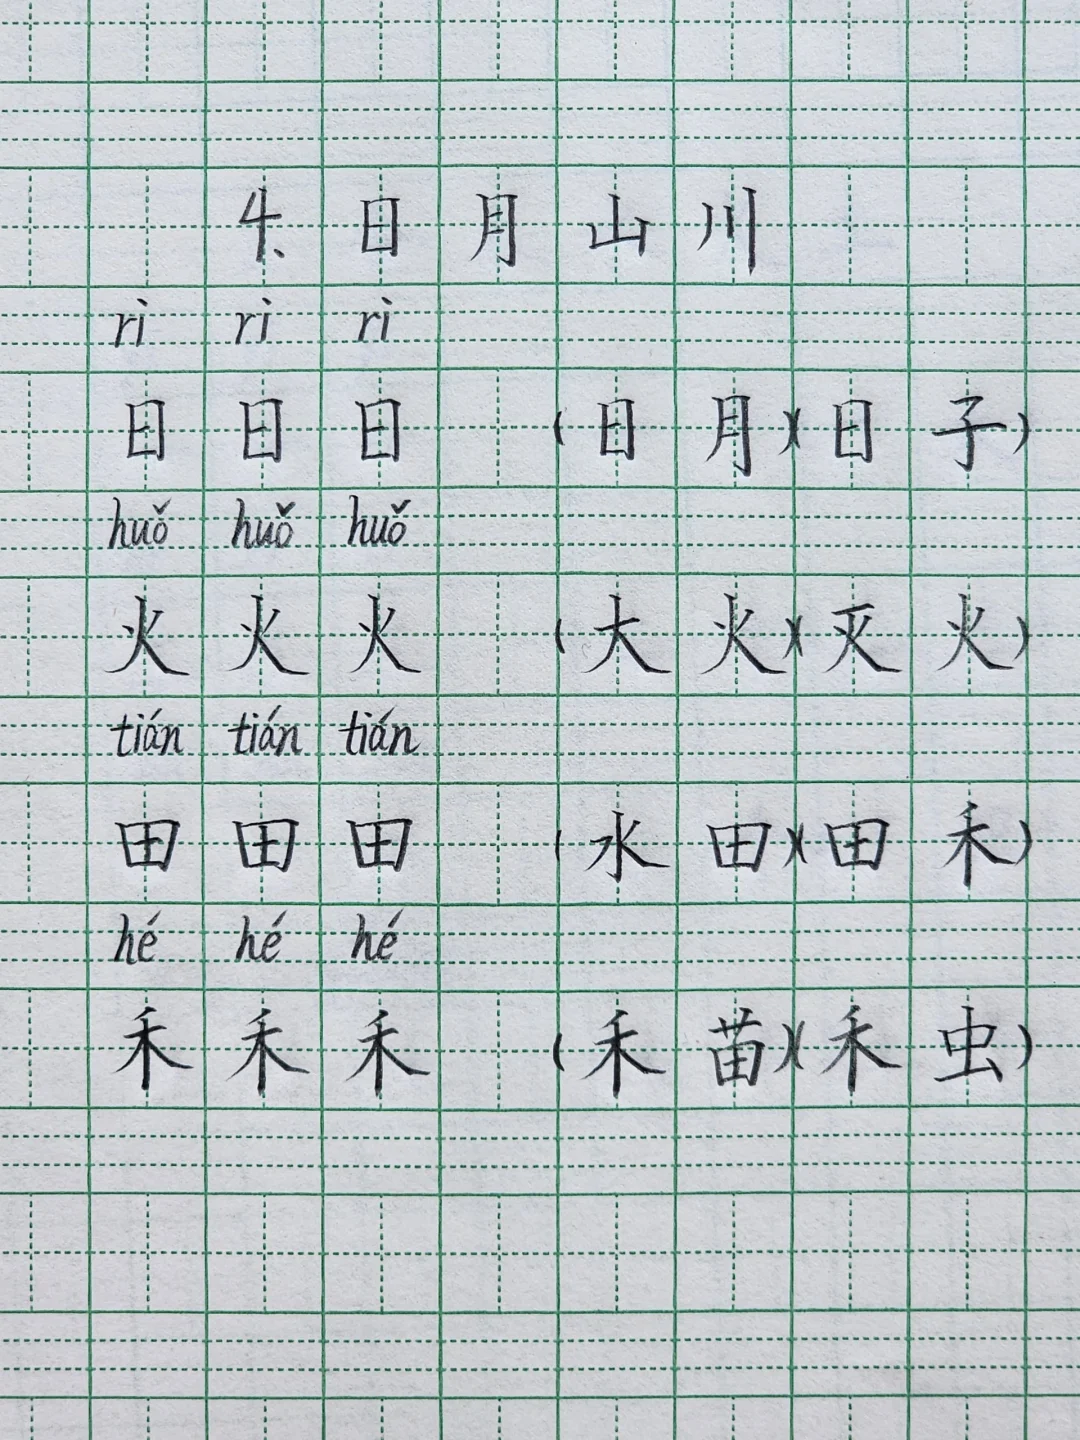 4、日月山川
rì rì rì
日 日 日 (日月)(日子)
huǒ huǒ huǒ
火 火 火 (大火)(灭火)
tián tián tián
田 田 田 (水田)(田禾)
hé hé hé
禾 禾 禾 (禾苗)(禾虫)